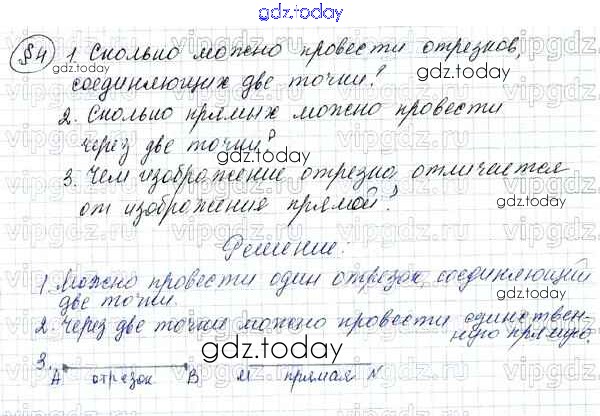 gdz.today
§4 1. Сколько можно провести отрезков,
gdz.today
соединяющих две точки?
gdz.today
2. Сколько прямых можно провести
через две точки?
gdz.today
3. Чем изображение отрезка отличается
от изображения прямой?
gdz.today
Решение:
1. Можно провести один отрезок, соединяющий
две точки.
gdz.today
2. Через две точки можно провести единствен-
ную прямую.
gdz.today
3. A отрезок B M прямая N
gdz.today